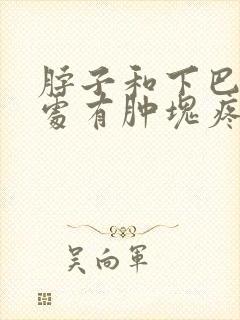 脖子和下巴
处有肿块疼
吴向军